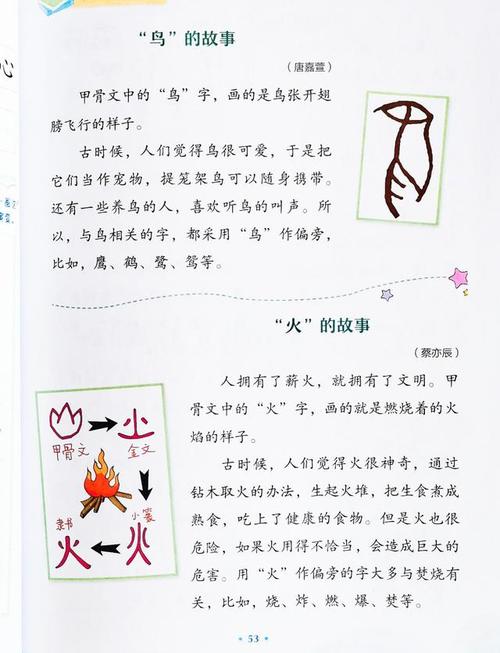 心
“鸟”的故事
（唐嘉萱）
甲骨文中的“鸟”字，画的是鸟张开翅
膀飞行的样子。
古时候，人们觉得鸟很可爱，于是把
它们当作宠物，提笼架鸟可以随身携带。
还有一些养鸟的人，喜欢听鸟的叫声。所
以，与鸟相关的字，都采用“鸟”作偏旁，
比如，鹰、鹤、鹭、鸳等。
“火”的故事
（蔡亦辰）
人拥有了薪火，就拥有了文明。甲
骨文中的“火”字，画的就是燃烧着的火
焰的样子。
古时候，人们觉得火很神奇，通过
钻木取火的办法，生起火堆，把生食煮成
熟食，吃上了健康的食物。但是火也很
危险，如果火用得不恰当，会造成巨大的
危害。用“火”作偏旁的字大多与焚烧有
关，比如，烧、炸、燃、爆、焚等。
甲骨文
金文
隶书
小篆
火
火
53